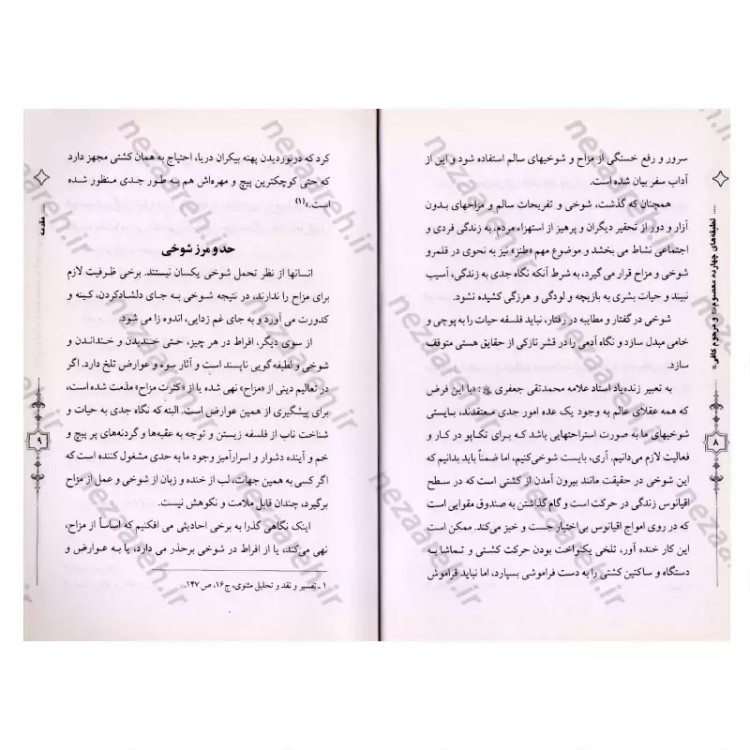 سرور و رفع خستگی از مزاح و شوخیهای سالم استفاده شود و این از
آداب سفر بیان شده است.
همچنان که گذشت، شوخی و تفریحات سالم و مزاحهای بدون
آزار و دور از تحقیر دیگران و پرهیز از استهزاء مردم، به زندگی فردی و
اجتماعی نشاط می بخشد و موضوع مهم «طنز» نیز به نحوی در قلمرو
شوخی و مزاح قرار می گیرد، به شرط آنکه نگاه جدی به زندگی، آسیب
نبیند و حیات بشری به بازیچه و لودگی و هرزگی کشیده نشود.
شوخی در گفتار و مطایبه در رفتار، نباید فلسفه حیات را به پوچی و
خامی مبدل سازد و نگاه آدمی را در قشر نازکی از حقایق هستی متوقف
سازد.
به تعبیر زنده‌یاد استاد علامه محمدتقی جعفری : «با این فرض
که همه عقلای عالم به وجود یک عده امور جدی معتقدند، بایستی
شوخیهای ما به صورت استراحتهایی باشد که برای تکاپو در کار و
فعالیت لازم می‌دانیم. آری، بایست شوخی‌کنیم، اما ضمناً باید بدانیم که
این شوخی در حقیقت مانند بیرون آمدن از کشتی است که در سطح
اقیانوس زندگی در حرکت است و گام گذاشتن به صندوق مقوایی است
که در روی امواج اقیانوس بی‌اختیار جست و خیز می‌کند. ممکن است
این کار خنده آور، تلخی یکنواخت بودن حرکت کشتی و تماشا به
دستگاه و ساکنین کشتی را به دست فراموشی بسپارد، اما نباید فراموش
.... لطیفه‌های چهارده معصوم و مرحوم کافی
۸
کرد که درنوردیدن پهنه بیکران دریا، احتیاج به همان کشتی مجهز دارد
که حتی کوچکترین پیچ و مهره‌اش هم به طور جدی منظور شده
است.»(۱)
حد و مرز شوخی
انسانها از نظر تحمل شوخی یکسان نیستند. برخی ظرفیت لازم
برای مزاح را ندارند، در نتیجه شوخی به جای دلشادکردن، کینه و
کدورت می آورد و به جای غم زدایی، اندوه زا می شود.
از سوی دیگر، افراط در هر چیز، حتی خندیدن و خنداندن و
شوخی و لطیفه‌گویی ناپسند است و آثار سوء و عوارض تلخ دارد. اگر
در تعالیم دینی از «مزاح» نهی شده یا از «کثرت مزاح» مذمت شده است،
برای پیشگیری از همین عوارض است. البته که نگاه جدی به حیات و
شناخت ناب از فلسفه زیستن و توجه به عقبه‌ها و گردنه‌های پر پیچ و
خم و آینده دشوار و اسرارآمیز وجود ما به حدی مشغول کننده است که
اگر کسی به همین جهات، لب از خنده و زبان از شوخی و عمل از مزاح
برگیرد، چندان قابل ملامت و نکوهش نیست.
اینک نگاهی گذرا به برخی احادیثی می افکنیم که اساساً از مزاح،
نهی می‌کند، یا از افراط در شوخی برحذر می دارد، یا به عوارض و
۱ ـ تفسیر و نقد و تحلیل مثنوی، ج۱۶، ص ۱۴۷.
مقدمه
۹
nezaareh.ir